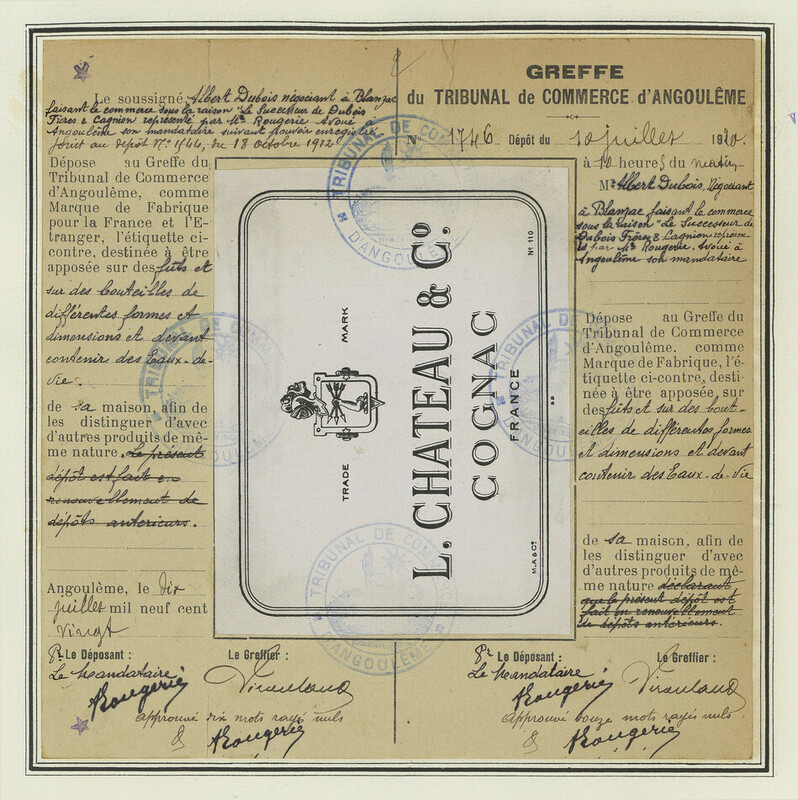 Le soussigné Albert Dubois négociant à Blanzac
faisant le commerce sous la raison "Le Successeur de Dubois
Frères & Cagnion représenté par Me Rougerie Avoué
Angoulême son mandataire suivant pouvoir enregistré
joint au dépôt No 1544, du 18 octobre 1912
Dépose au Greffe du
Tribunal de Commerce
d'Angoulême, comme
Marque de Fabrique
pour la France et l'E-
tranger, l'étiquette ci-
contre, destinée à être
apposée sur des fûts et
sur des bouteilles de
différentes formes et
dimensions et devant
contenir des Eaux-de-
vie.
de sa maison, afin de
les distinguer d'avec
d'autres produits de mê-
me nature. Le présent
dépôt est fait en
renouvellement de
dépôts antérieurs.
Angoulême, le dix
juillet mil neuf cent
vingt
Pr Le Déposant :
Le Mandataire
Rougerie
Le Greffier :
approuvé dix mots rayés nuls
Rougerie
L. CHATEAU & Co.
COGNAC
FRANCE
TRADE MARK
No 110
M.A & Co.
TRIBUNAL DE COMMERCE
D'ANGOULÊME
TRIBUNAL DE COMMERCE
TRIBUNAL DE COMMERCE
TRIBUNAL DE COMMERCE
D'ANGOULÊME
GREFFE
du TRIBUNAL de COMMERCE d'ANGOULÊME
1746 Dépôt du 10 juillet 1920.
à 10 heures du matin
Mr Albert Dubois, Négociant
à Blanzac faisant le commerce
sous la raison "Le Successeur de
Dubois Frères & Cagnion représen-
té par Me Rougerie, Avoué à
Angoulême son mandataire
Dépose au Greffe du
Tribunal de Commerce
d'Angoulême, comme
Marque de Fabrique, l'é-
tiquette ci-contre, desti-
née à être apposée, sur
des fûts et sur des bout-
eilles de différentes formes
et dimensions et devant
contenir des Eaux-de-vie
de sa maison, afin de
les distinguer d'avec
d'autres produits de mê-
me nature déclarant
que le présent dépôt est
fait en renouvellement
de dépôts antérieurs.
Pr Le Déposant :
Le Mandataire
Rougerie
Le Greffier :
approuvé douze mots rayés nuls
Rougerie